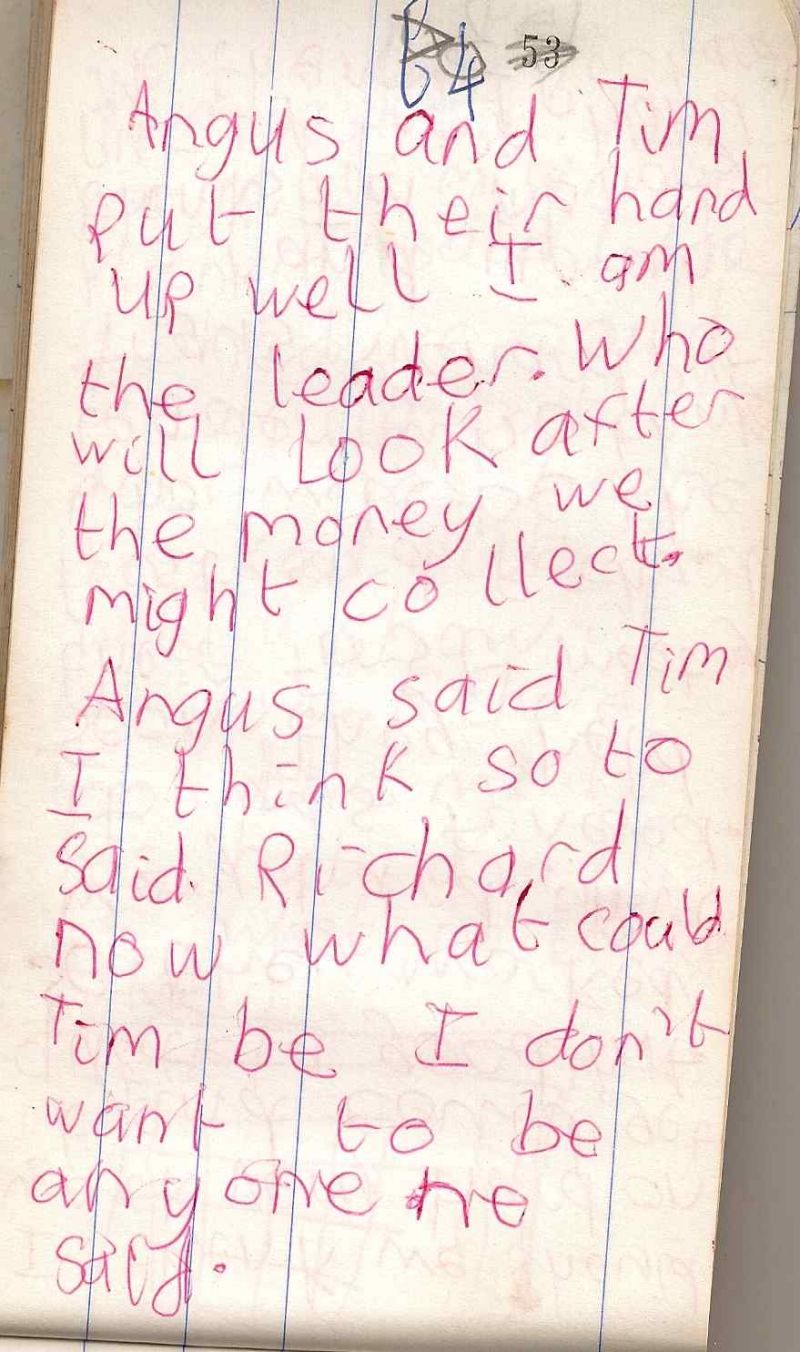 64 53
Angus and Tim
put their hand
up well I am
the leader. Who
will look after
the money we
might collect.
Angus said Tim
I think so to
said Richard
now what could
Tim be I don't
want to be
anyone he
say.